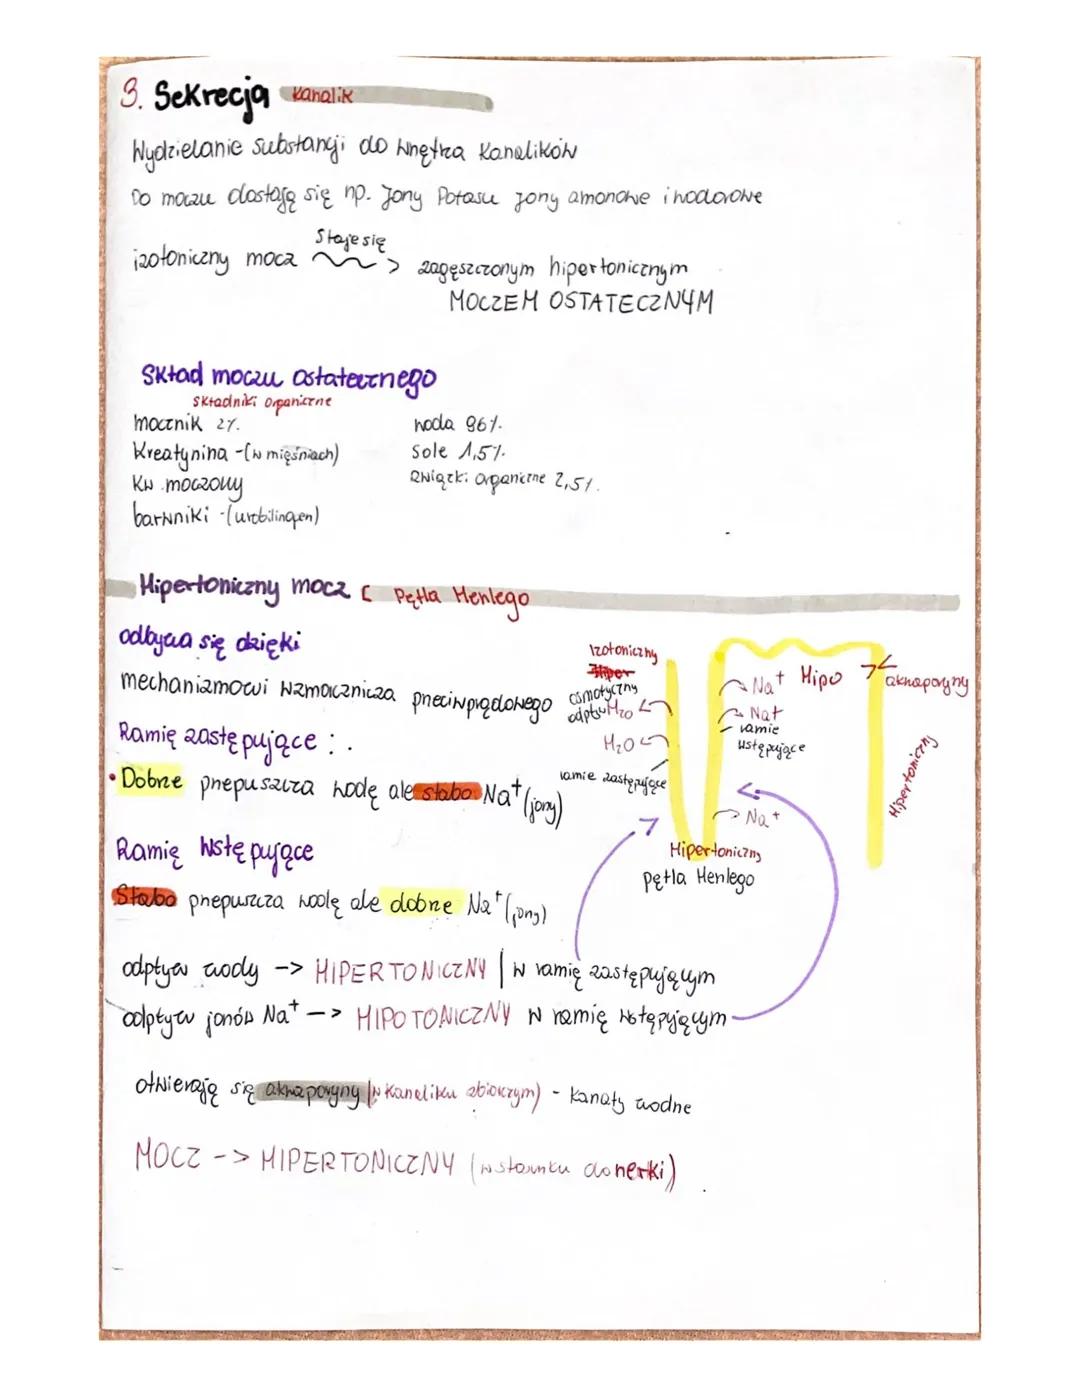 3. Sekrecja kanalik
Wydzielanie substancji do wnętrza kanalików
Do moczu dostają się np. jony Potasu jony amonowe i wodorowe
staje się
izotoniczny mocz ~~> zagęszczonym hipertonicznym
MOCZEM OSTATECZNYM
Skład moczu ostatecznego
składniki organiczne
mocznik 2%.
Kreatynina -(w mięśniach)
Kw. moczowy
barwniki -(urobilinogen)
woda 96%.
sole 1,5%.
związki organiczne 2,5%.
Hipertoniczny mocz [ Pętla Henlego
odbywa się dzięki
mechanizmowi wzmacnicza przeciwprądowego
Ramię zastępujące : .
• Dobrze przepuszcza wodę ale słabo Na+ (jony)
Ramię wstępujące
Słabo przepuszcza wodę ale dobrze Na+ (jony)
Izotoniczny
Hiper
osmotyczny
odpływ H2O
H2O
ramie zastępujące
Na+ Hipo
akwaporyny
Na+
ramie
wstępujące
Na+
Hipertoniczny
Hipertoniczny
pętla Henlego
odpływ wody -> HIPERTONICZNY | w ramię zastępującym
odpływ jonów Na+ -> HIPOTONICZNY w ramię wstępującym
otwierają się akwaporyny (w kanaliku zbiorczym) - kanały wodne
MOCZ -> HIPERTONICZNY (w stosunku do nerki)